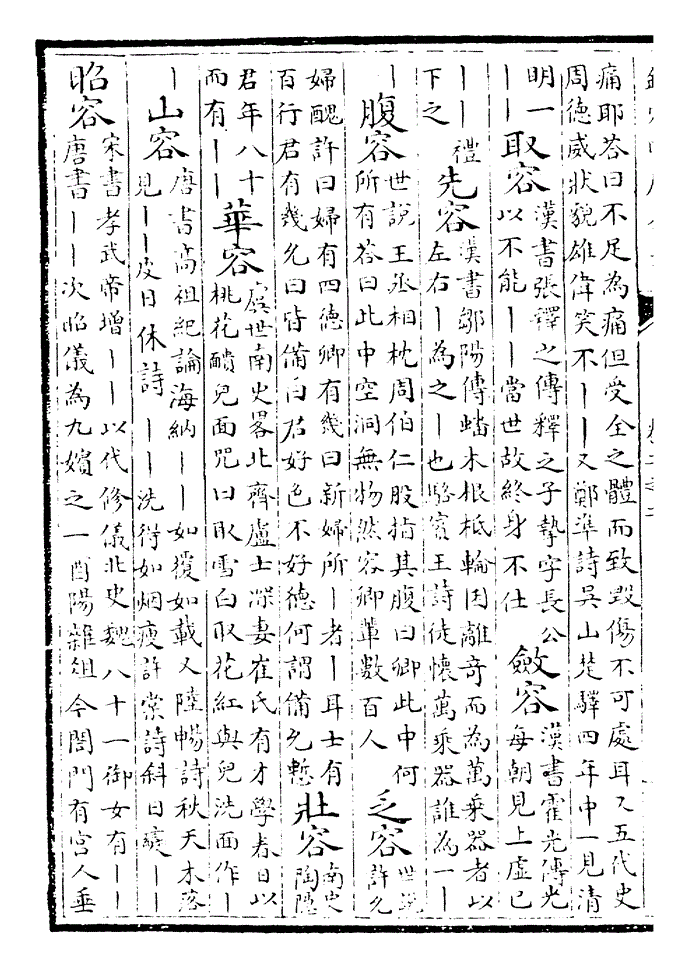 痛耶荅曰不足為痛但受全之體而致毀傷不可處耳又五代史
周德威狀貌雄偉笑不｜｜又鄭準詩吳山楚驛四年中一見清
明一
｜｜
取容
漢書張釋之傳釋之子摯字長公
以不能｜｜當世故終身不仕
斂容
漢書霍光傳光
每朝見上虛己
｜｜禮
下之
先容
漢書鄒陽傳蟠木根柢輪囷離奇而為萬乘器者以
左右｜為之｜也駱賓王詩徒懷萬乘器誰為一｜
｜
腹容
世說王丞相枕周伯仁股指其腹曰卿此中何
所有荅曰此中空洞無物然容卿輩數百人
乏容
世說
許允
婦醜許曰婦有四德卿有幾曰新婦所｜者｜耳士有
百行君有幾允曰皆備曰君好色不好德何謂備允慙
壯容
南史
陶隱
君年八十
而有｜｜
華容
虞世南史畧北齊盧士深妻崔氏有才學春日以
桃花靧兒面咒曰取雪白取花紅與兒洗面作｜
｜
山容
唐書高祖紀論海納｜｜如覆如載又陸暢詩秋天木落
見｜｜皮日休詩｜｜洗得如烟瘦許棠詩斜日礙｜｜
昭容
宋書孝武帝增｜｜以代修儀北史魏八十一御女有｜｜
唐書｜｜次昭儀為九嬪之一酉陽雜俎今閤門有宮人垂